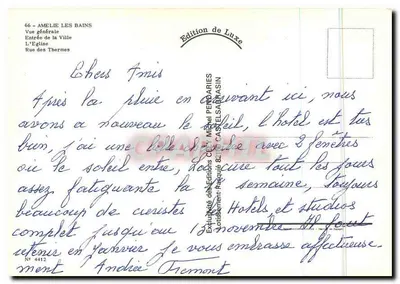 66 - AMELIE LES BAINS
Vue générale
Entrée de la Ville
L'Eglise
Rue des Thermes
Edition de Luxe
Chers Amis
Après la pluie en arrivant ici, nous
avons a nouveau le soleil, l'hotel est très
bien, j'ai une belle chambre avec 2 fenêtres
où le soleil entre, cure tout les jours
assez fatiguante la semaine, toujours
beaucoup de curistes Hotels et studios
complet jusqu'au 15 novembre il faut
retenir en janvier je vous embrasse affectueuse-
ment Andrée Fremont
N° 4412
Michel PENDARIES
CASTELSARRASIN